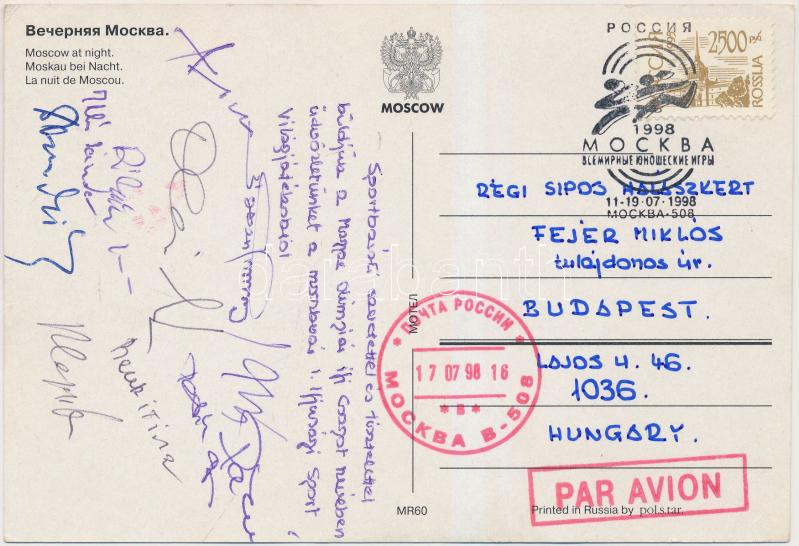 Вечерняя Москва.
Moscow at night.
Moskau bei Nacht.
La nuit de Moscou.
MOSCOW
Sportbaráti szeretettel és tisztelettel
küldjük a Magyar Olimpiai ifi Csapat nevében
üdvözletünket a moszkvai I. Ifjúsági Sport
Világjátékokról
РОССИЯ
1998
МОСКВА
ВСЕМИРНЫЕ ЮНОШЕСКИЕ ИГРЫ
11-19·07·1998
МОСКВА-508
2500 руб
ROSSIJA
1995
RÉGI SIPOS HALÁSZKERT
FEJÉR MIKLÓS
tulajdonos úr.
BUDAPEST.
LAJOS U. 46.
1036.
HUNGARY.
МОТЕЛ
ПОЧТА РОССИИ
17 07 98 16
*Б*
МОСКВА В-508
PAR AVION
MR60
Printed in Russia by pol.s.tar.
darabanth